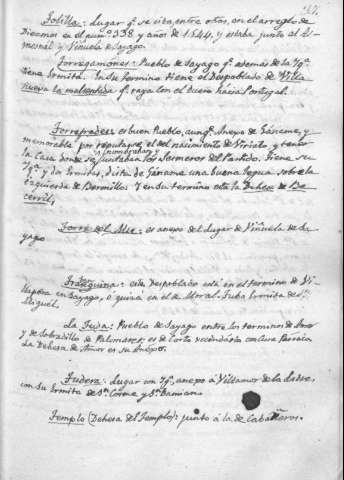 Tolilla: Lugar q.e se cita, entre otros, en el arreglo de
Diezmos en el num.o 338 y años de 1544, y estaba junto al
y Viñuela de Sayago.
Torregamones: Pueblo de Sayago q.e ademas de la Yg.a
tiene Ermita. En su termino tiene el despoblado de Villa
nueva la maldonida q.e raya con el duero hacia Portugal.
Torrefrades: es buen Pueblo, aunq.e Anexo de Gáname, y
memorable por reputarse el del nacimiento de Viriato, y tener
la Casa donde se juntaban los Sesmeros del Partido. Tiene su
Yg.a y dos Ermitas, dista de Gáname una buena legua sobre la
izquierda de Bermillo. Y en su termino esta la Dehesa de Be
cerril.
Torre del Mue: es anexo del Lugar de Viñuela de Sa
yago
este Despoblado está en el termino de Vi
en Sayago, o quiza en el de Moral. Hubo Ermita de S.n
Miguel.
La Tuda: Pueblo de Sayago entre los terminos de
y de Sobradillo de Palomares: es de Corta vecindario con Cura Parroco
La Dehesa de Amor es su Anexo.
Tudera: Lugar con Yg.a, anexo á Villamor de la Ladre,
con su Ermita de S.n Cosme y S.n Damian.
Templo (Dehesa del Templo): junto á la de Caballeros.